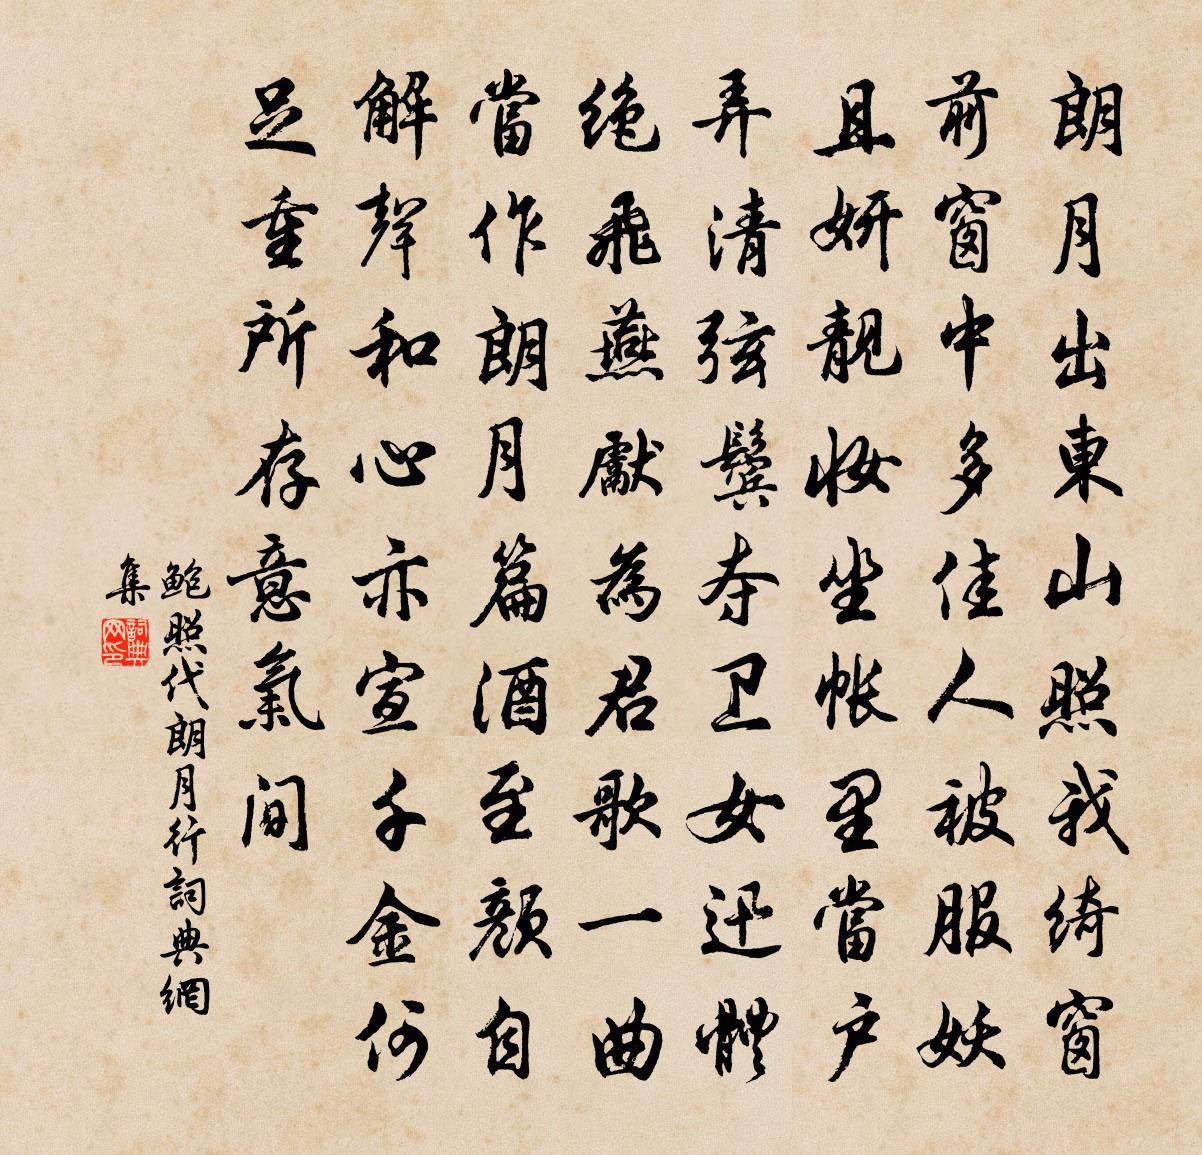 朗月出東山照我綺窗
前窗中多佳人被服妖
且妍靚妝坐帐里當户
弄清弦鬓夺卫女迅體
绝飛燕獻為君歌一曲
當作朗月篇酒至顏自
解聲和心亦宣千金何
足重所存意氣間
鮑照代朗月行詞典網
集
詞典网印